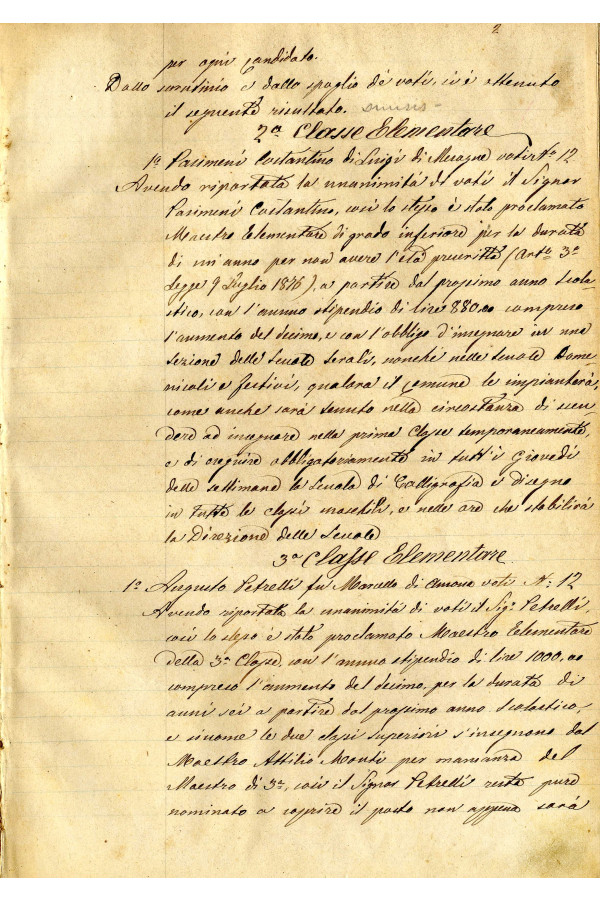 2
per ogni Candidato.
Dallo scrutinio e dallo spoglio dé voti, si è ottenuto
il seguente risultato.
2ª Classe Elementare
1º Pasimeni Costantino di Luigi di Mesagne voti Nº 12
Avendo riportata la unanimità di voti il Signor
Pasimeni Costantino, così lo stesso è stato proclamato
Maestro Elementare di grado inferiore per la durata
di un'anno per non avere l'età prescritta (Artº 3º
Legge 9 Luglio 1876), a partire dal prossimo anno Scola-
stico, con l'annuo stipendio di lire 880,00 compreso
l'aumento del decimo, e con l'obbligo d'insegnare in una
sezione delle Scuole Serali, nonchè nelle Scuole Dome
nicali e festivi, qualora il Comune le impianterà,
come anche sarà tenuto nella circostanza di scen-
dere ad insegnare nella prima Classe temporaneamente,
e di eseguire obbligatoriamente in tutt'i Giovedì
delle settimane la Scuola di Calligrafia e disegno
in tutte le classi maschili, e nelle ore che stabilirà
la Direzione delle Scuole
3ª Classe Elementare
1º Augusto Petrelli fu Marcello di voti Nº 12
Avendo riportata la unanimità di voti il Sigr Petrelli,
così lo stesso è stato proclamato Maestro Elementare
della 3ª Classe, con l'annuo stipendio di lire 1000,00
compreso l'aumento del decimo, per la durata di
anni sei a partire dal prossimo anno Scolastico,
e siccome le due classi superiori s'insegnano dal
Maestro Attilio Monti per mancanza del
Maestro di 3ª, così il Signor Petrelli resta pure
nominato a coprire il posto non appena sarà